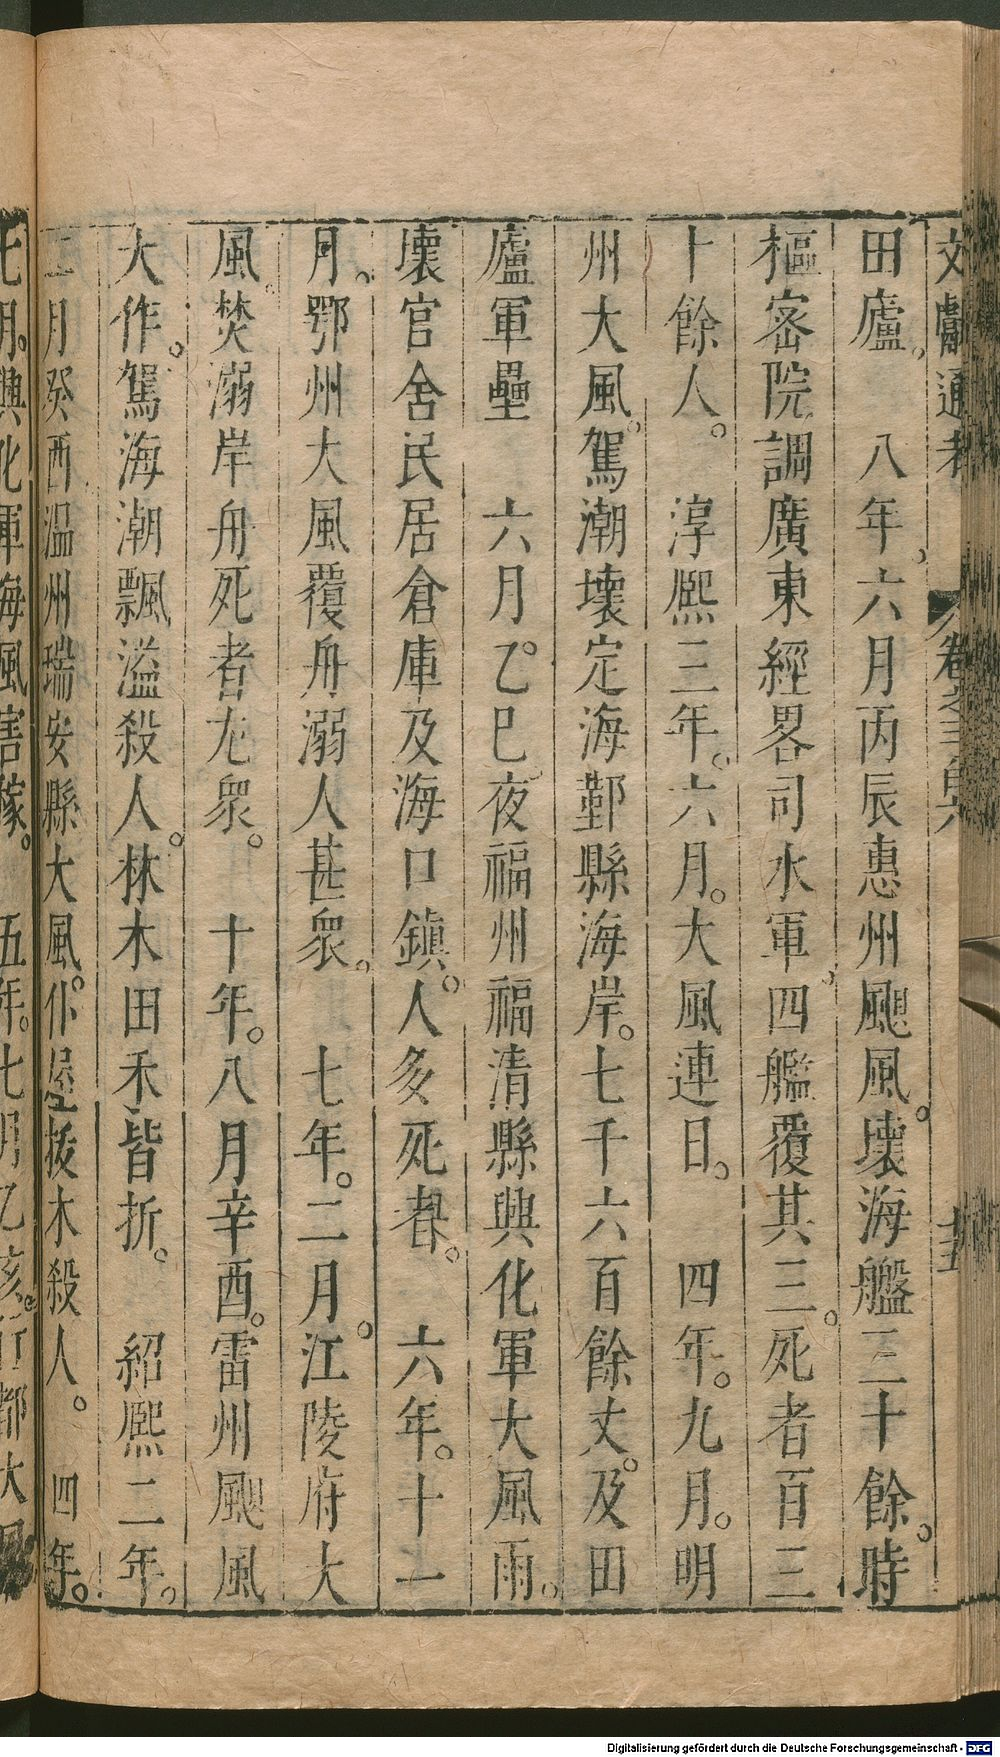 文獻通考 卷之三百六 十五
田廬。八年。六月丙辰惠州颶風。壞海艦三十餘。時
樞密院調廣東經畧司水軍。四艦覆其三。死者百三
十餘人。淳熙三年。六月。大風連日。四年。九月。明
州大風。駕潮壞定海鄞縣海岸。七千六百餘丈。及田
廬軍壘 六月乙巳夜福州福清縣興化軍大風雨。
壞官舍民居倉庫及海口鎮。人多死者。六年。十一
月。鄂州大風覆舟溺人甚衆。七年。二月。江陵府大
風。焚溺岸舟死者尢衆。十年。八月辛酉。雷州颶風
大作。駕海潮飄溢殺人。林木田禾皆折。紹熙二年。
二月癸酉溫州瑞安縣大風。仆屋拔木殺人。四年。
七月。興化軍海風害稼。五年。七月乙亥。行都大風
Digitalisierung gefördert durch die Deutsche Forschungsgemeinschaft - DFG